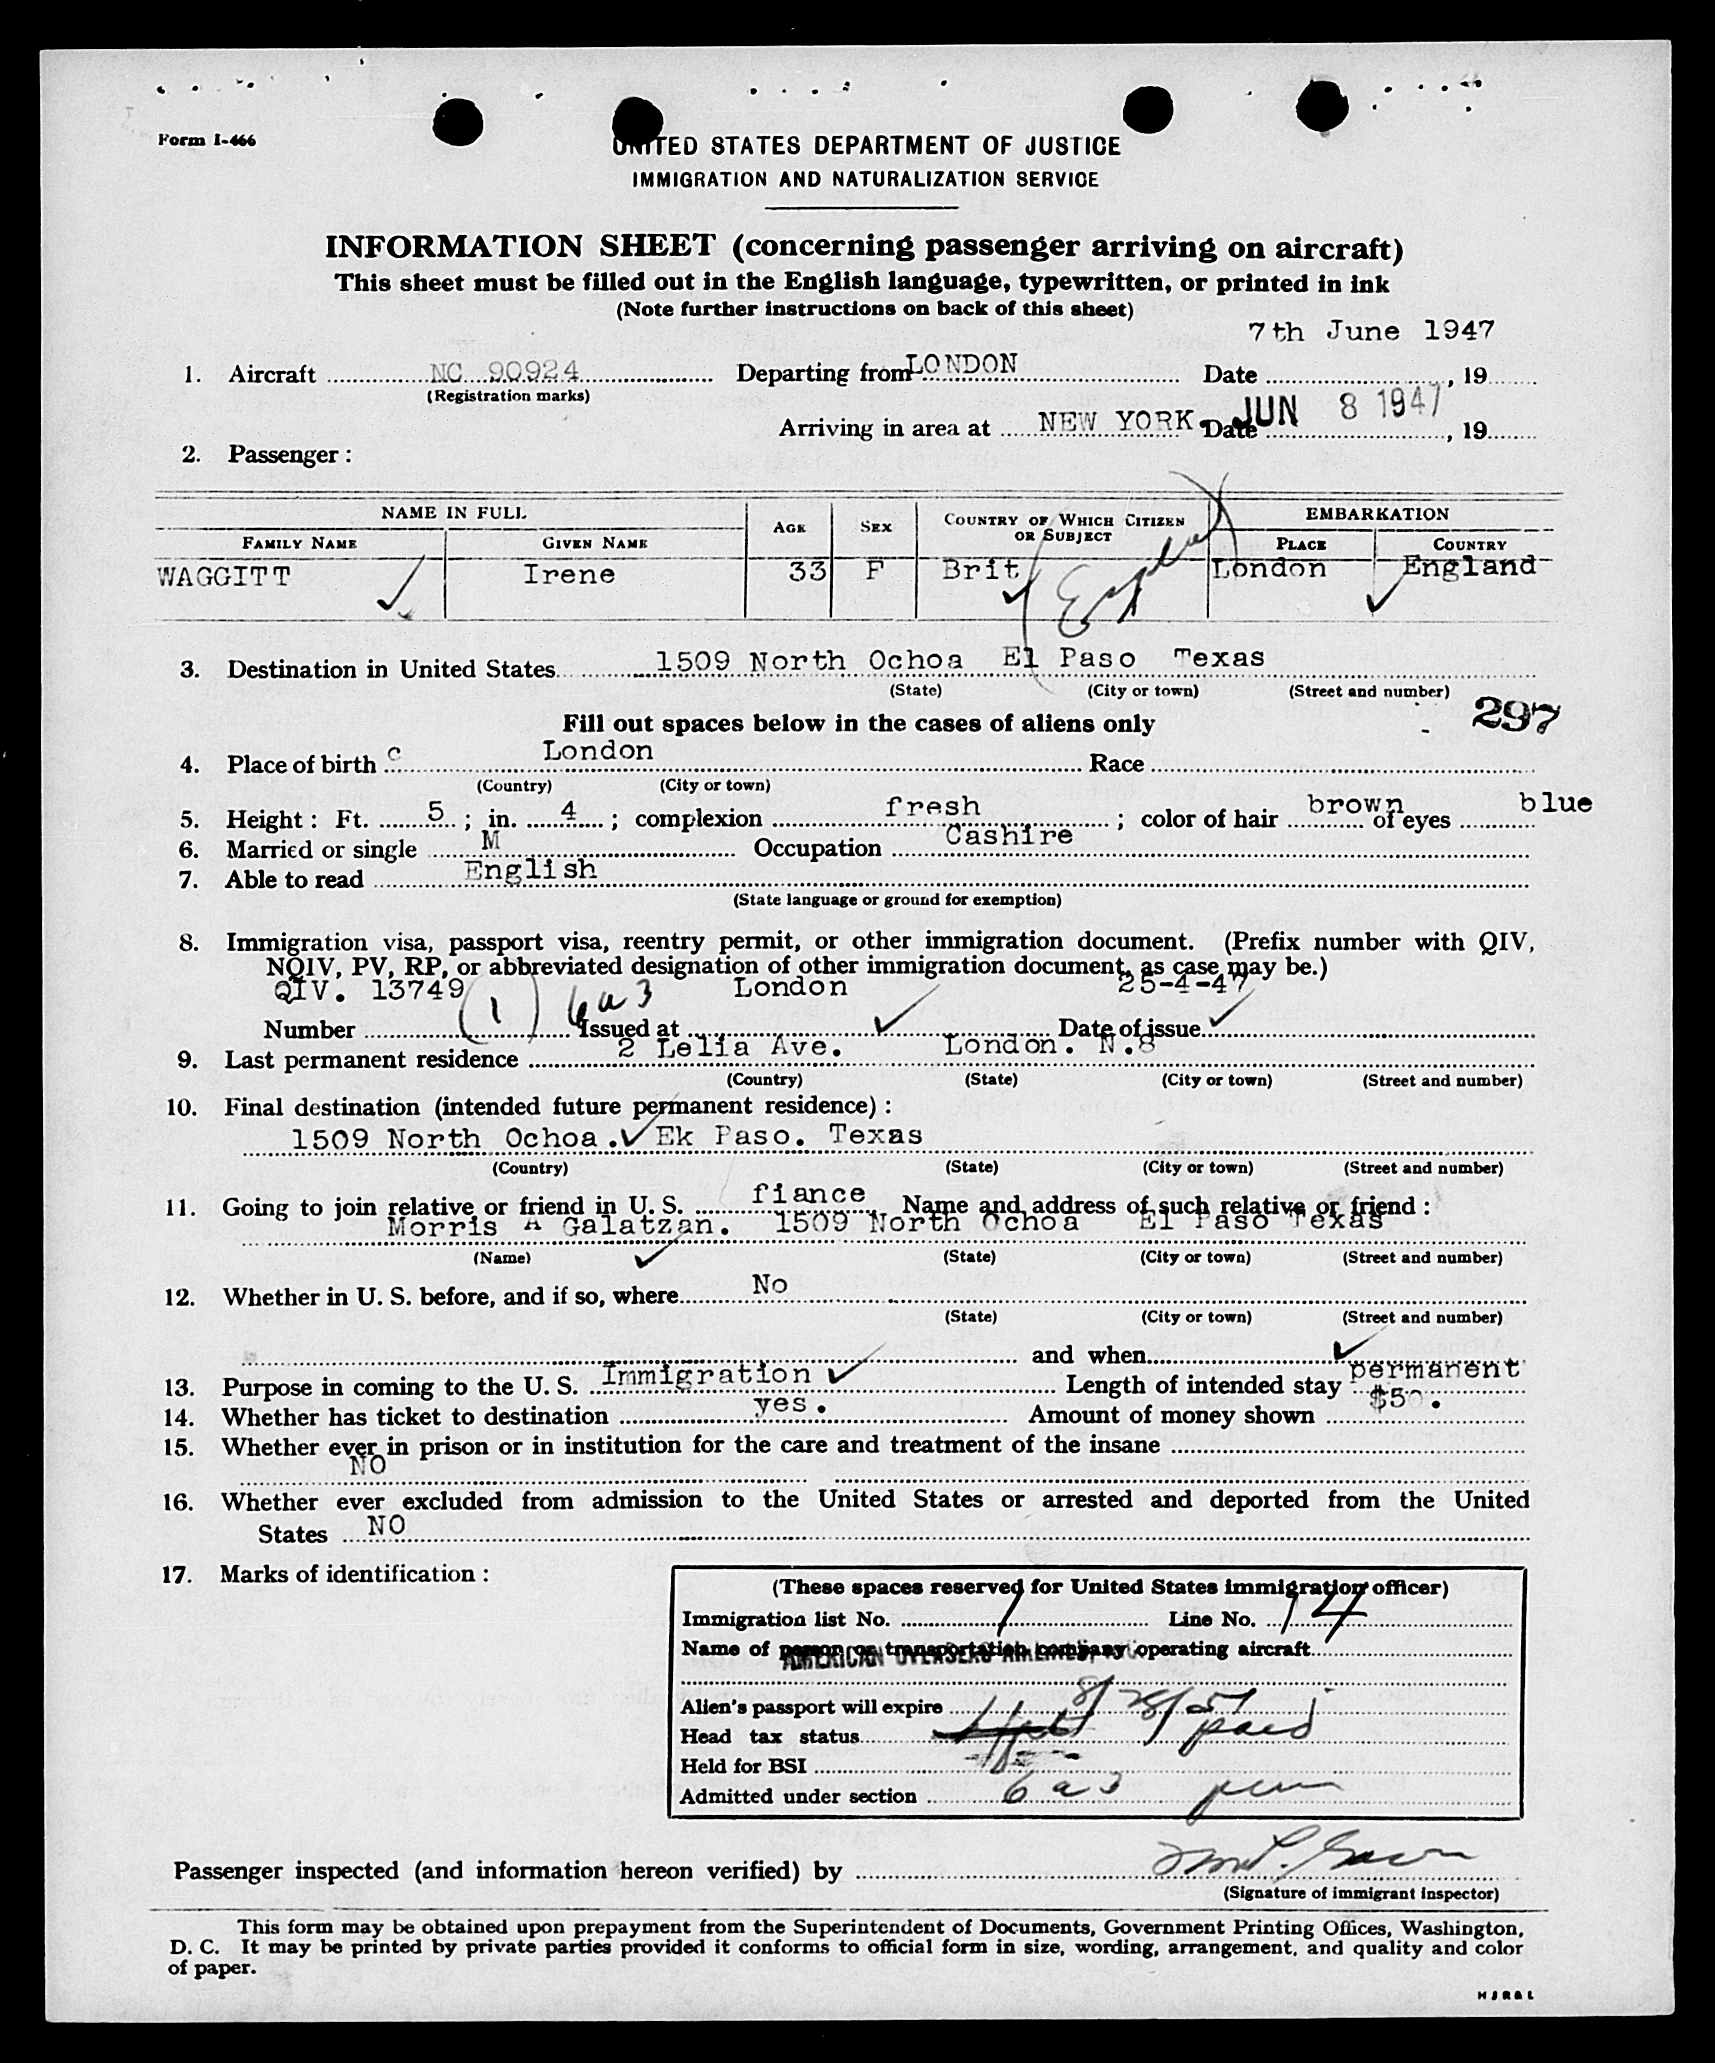 Form I-466
UNITED STATES DEPARTMENT OF JUSTICE
IMMIGRATION AND NATURALIZATION SERVICE
INFORMATION SHEET (concerning passenger arriving on aircraft)
This sheet must be filled out in the English language, typewritten, or printed in ink
(Note further instructions on back of this sheet)
7th June 1947
1. Aircraft NC 90924 Departing from LONDON Date , 19
(Registration marks)
Arriving in area at NEW YORK Date JUN 8 1947 , 19
2. Passenger:
NAME IN FULL AGE SEX COUNTRY OF WHICH CITIZEN OR SUBJECT EMBARKATION
FAMILY NAME GIVEN NAME PLACE COUNTRY
WAGGITT Irene 33 F Brit London England
3. Destination in United States 1509 North Ochoa El Paso Texas
(State) (City or town) (Street and number)
297
Fill out spaces below in the cases of aliens only
4. Place of birth c London Race
(Country) (City or town)
5. Height: Ft. 5 ; in. 4 ; complexion fresh ; color of hair brown of eyes blue
6. Married or single M Occupation Cashire
7. Able to read English
(State language or ground for exemption)
8. Immigration visa, passport visa, reentry permit, or other immigration document. (Prefix number with QIV,
NQIV, PV, RP, or abbreviated designation of other immigration document, as case may be.)
QIV. 13749 (1) 6a3 London 25-4-47
Number Issued at Date of issue
9. Last permanent residence 2 Lelia Ave. London. N.8
(Country) (State) (City or town) (Street and number)
10. Final destination (intended future permanent residence):
1509 North Ochoa. Ek Paso. Texas
(Country) (State) (City or town) (Street and number)
11. Going to join relative or friend in U. S. fiance Name and address of such relative or friend:
Morris A Galatzan. 1509 North Ochoa El Paso Texas
(Name) (State) (City or town) (Street and number)
12. Whether in U. S. before, and if so, where No
(State) (City or town) (Street and number)
and when
13. Purpose in coming to the U. S. Immigration Length of intended stay permanent
14. Whether has ticket to destination yes. Amount of money shown $50.
15. Whether ever in prison or in institution for the care and treatment of the insane
NO
16. Whether ever excluded from admission to the United States or arrested and deported from the United
States NO
17. Marks of identification:
(These spaces reserved for United States immigration officer)
Immigration list No. 1 Line No. 14
Name of person or transportation company operating aircraft
AMERICAN OVERSEAS AIRLINES, INC.
Alien's passport will expire 8/28/51
Head tax status paid
Held for BSI
Admitted under section 6a3 perm
Passenger inspected (and information hereon verified) by
(Signature of immigrant inspector)
This form may be obtained upon prepayment from the Superintendent of Documents, Government Printing Offices, Washington,
D. C. It may be printed by private parties provided it conforms to official form in size, wording, arrangement, and quality and color
of paper.
HJR&L